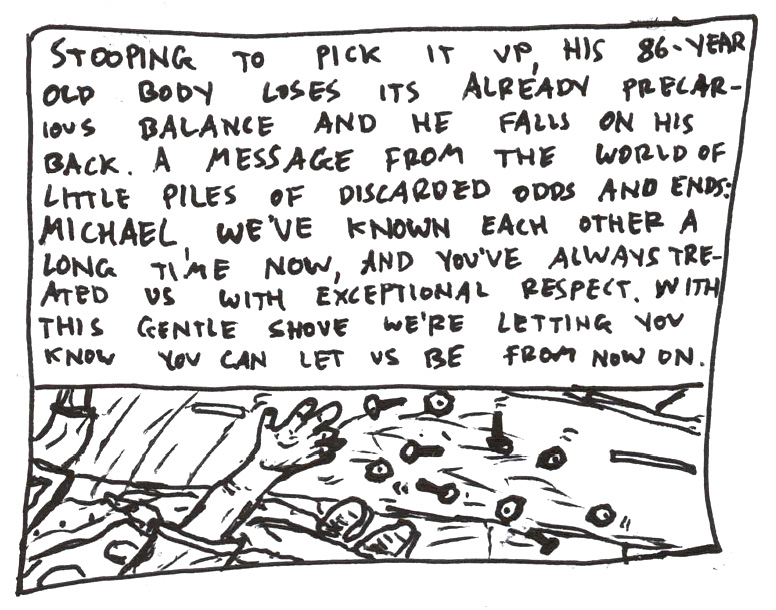 STOOPING TO PICK IT UP, HIS 86-YEAR
OLD BODY LOSES ITS ALREADY PRECAR-
IOUS BALANCE AND HE FALLS ON HIS
BACK. A MESSAGE FROM THE WORLD OF
LITTLE PILES OF DISCARDED ODDS AND ENDS:
MICHAEL, WE'VE KNOWN EACH OTHER A
LONG TIME NOW, AND YOU'VE ALWAYS TRE-
ATED US WITH EXCEPTIONAL RESPECT. WITH
THIS GENTLE SHOVE WE'RE LETTING YOU
KNOW YOU CAN LET US BE FROM NOW ON.